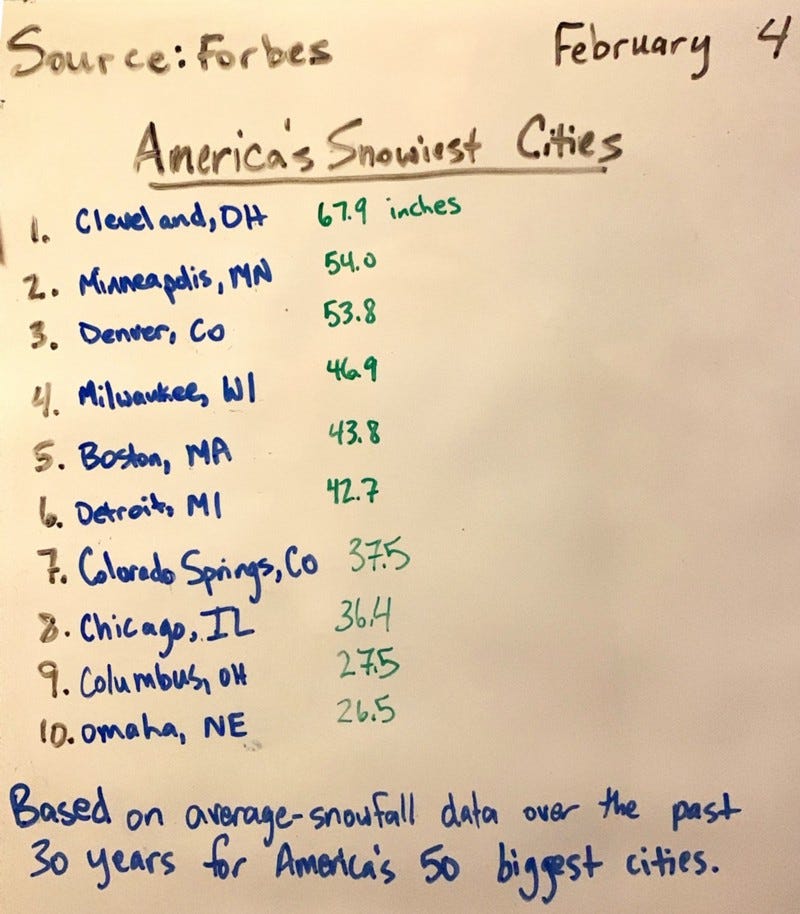 Source: Forbes February 4
America's Snowiest Cities
1. Cleveland, OH 67.9 inches
2. Minneapolis, MN 54.0
3. Denver, Co 53.8
4. Milwaukee, WI 46.9
5. Boston, MA 43.8
6. Detroit, MI 42.7
7. Colorado Springs, Co 37.5
8. Chicago, IL 36.4
9. Columbus, OH 27.5
10. Omaha, NE 26.5
Based on average-snowfall data over the past
30 years for America's 50 biggest cities.